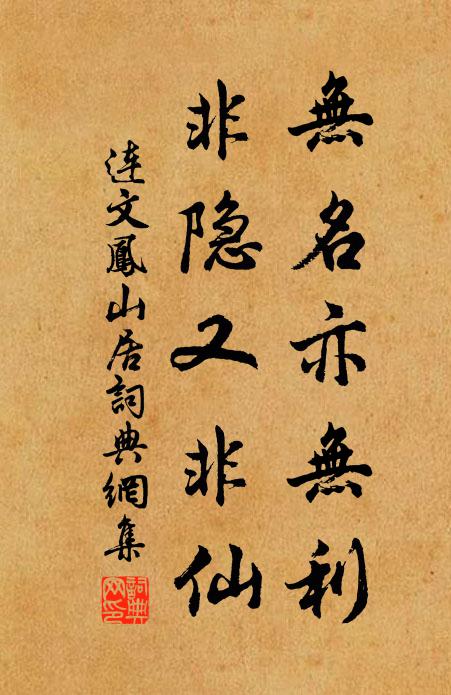 無名亦無利
非隐又非仙
連文鳳山居詞典網集
詞典網印